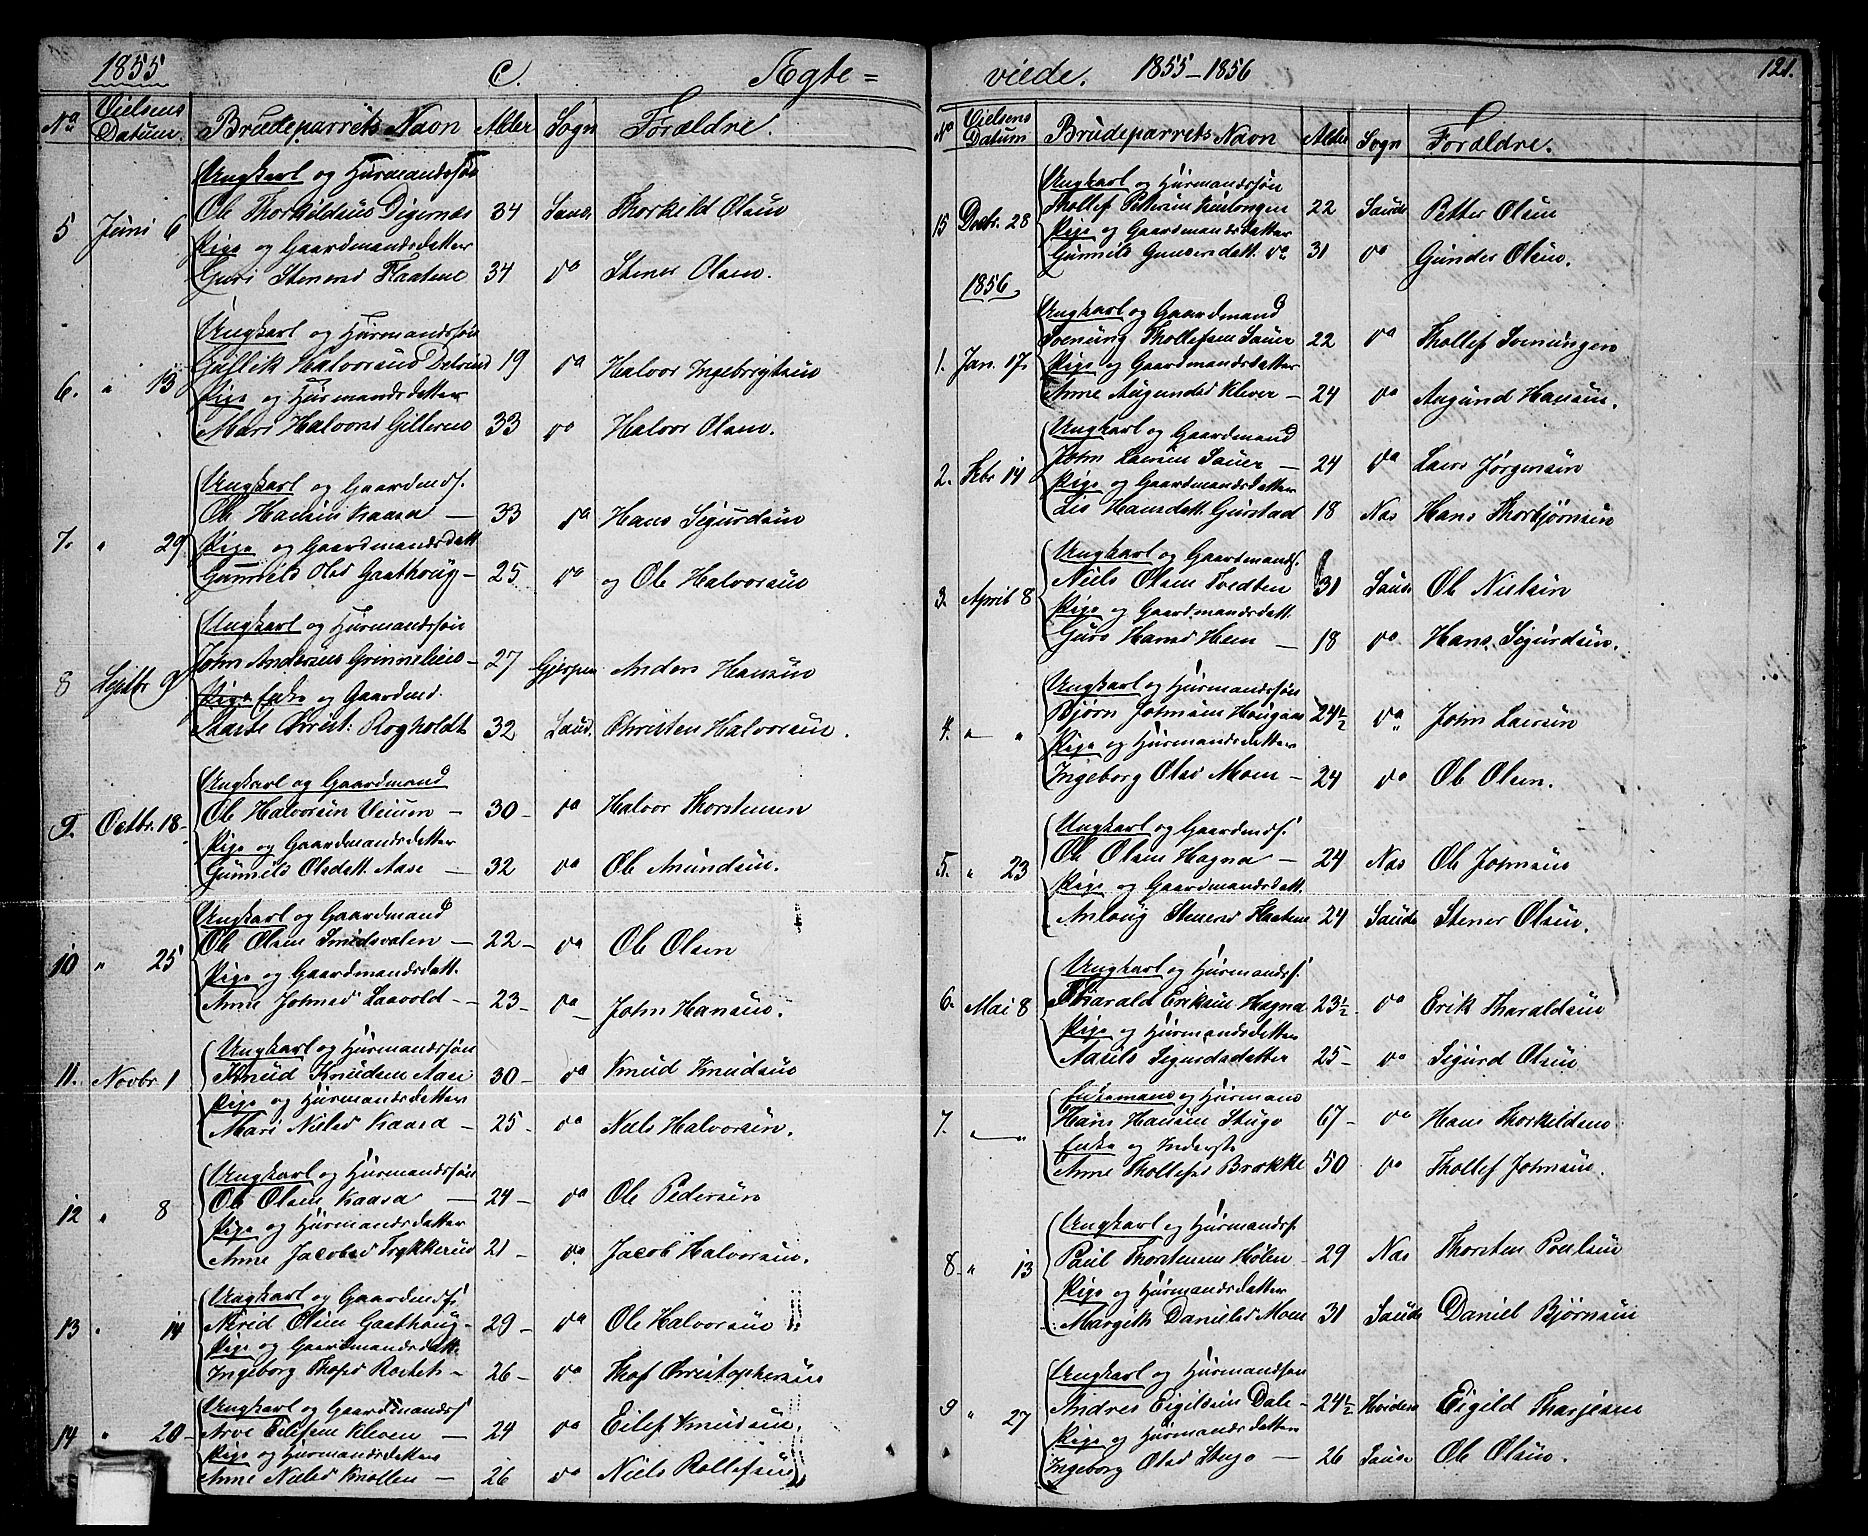 1855
C.
Ægte=
No
Vielsens Datum.
Brudeparrets Navn
Alder
Sogn
Forældre.
Ungkarl og Huusmandssøn
5 Juni 6 Ole Thorkildsen Digernæs 34 Saude Thorkild Olsen
Pige og Gaardmandsdatter
Guri Stensd Flaatene 34 do Stener Olsen.
Ungkarl og Huusmandssøn
6. " 13 Halvorsen 19 do Halvor Ingebrigtsen
Pige og Huusmandsdatter
Mari Halvorsd 33 do Halvor Olsen.
Ungkarl og Gaardmds.
7. " 29 Ole Hansen Kaasa — 33 do Hans Sigurdsen
Pige og Gaardmandsdatt
Gunnild Olsd Gaathoug — 25. do og Ole Halvorsen
Ungkarl og Huusmandssøn
8 Septbr 9 John Andersen 27 Gjerpen Anders Hansen
Pige Enke og Gaardmd.
Christ: Rogholdt 32 Saud. Christen Halvorsen.
Ungkarl og Gaardmand
9. Octbr. 18 Ole Halvorsen — 30 — do Halvor Thorstensen
Pige og Gaardmandsdatter
Gunnild Olsdatt. Aase — 32 do Ole Amundsen.
Ungkarl og Gaardmand
10 " 25 Ole Olsen Smedsvalen — 22 — do Ole Olsen
Pige og Gaardmandsdatt.
Anne Johnsd Laavold — 23 — do John Hansen.
Ungkarl og Huusmandssøn
11. Novbr 1 Knud Knudsen Aase 30 — do Knud Knudsen
Pige og Huusmandsdatter
Mari Nielsd Kaasa — 25 — do Niels Halvorsen.
Ungkarl og Huusmandssøn
12 " 8 Ole Olsen Kaasa — 24 — do Ole Pedersen
Pige og Huusmandsdatter
Anne Jacobsd Trykkerud 21 — do Jacob Halvorsen.
Ungkarl og Gaardmds.
13 " 14 Nerid Olsen Gaathoug — 29 — do Ole Halvorsen
Pige og Gaardmandsdatt.
Ingeborg Thofsd — 26 — do Thof Christophersen
Ungkarl og Gaardmands
14 " 20 — Arve Eilefsen Kleven — 24 do Eilef Knudsen.
Pige og Huusmandsdatter
Anne Nielsd Knollen — 26 do Niels Rollefsen
viede.
1855-1856
121.
No
Vielsens Datum
Brudeparrets Navn
Alder
Sogn
Forældre.
Ungkarl og Huusmandssøn
15 Decbr. 28 Thollef Pettersen 22 Saude Petter Olsen
Pige og Gaardmandsdatter
Gunnild Gundersdatt. do 31 do Gunder Olsen.
1856
Ungkarl og Gaardmand
1. Jan. 17. Svenung Thollefsen Sauer 22 do Thollef Svenungen
Pige og Gaardmandsdatter
Anne Augundsd Klever — 24 do Augund Hansen.
Ungkarl og Gaardmand
2. Febr 14 John Larsen Sauer — 24 do Lars Jørgensen
Pige og Gaardmandsdatter
Lis Hansdatt Gurstad 18 Næs Hans Thorbjørnsen
Ungkarl og Gaardmands.
3. April 8 Niels Olsen Tvedten 31 Saude Ole Nielsen
Pige og Gaardmandsdatt.
Guro Hansd Hem — 18 do Hans Sigurdsen.
Ungkarl og Huusmandssøn
4. " " Bjørn Johnsen 24½ do John Larsen
Pige og Huusmandsdatter
Ingeborg Olsd Moen — 24 do Ole Olsen.
Ungkarl og Gaardmds.
5. " 23 Ole Olsen Hagna — 24 Næs Ole Johnsen
Pige og Gaardmandsdatt.
Anlaug Stenersd 24 Saude Stener Olsen.
Ungkarl og Huusmands.
6. Mai 8 Tharald Eriksen Hagna 23½ do Erik Tharaldsen
Pige og Huusmandsdatter
Sigurdsdatter 25 — do Sigurd Olsen
Enkemand og Huusmand
7. " " Hans Hansen Stugo 67 — do Hans Thorkildsen
Enke og Inderst
Anne Thollefsd Brække 50 do Thollef Johnsen.
Ungkarl og Huusmands.
8 — " 13 Paul Thorstensen Hølen 29 Næs Thorsten Poulsen
Pige og Huusmandsdatter
Margith Danielsd Moen 31 Saude Daniel Bjørnsen
Ungkarl og Huusmandssøn
9 " 27 Andres Eigilsen Dale — 24½ Eigild Tharjesen
Pige og Huusmandsdatter
Ingeborg Olsd Stugo — 26 Saude Ole Olsen.